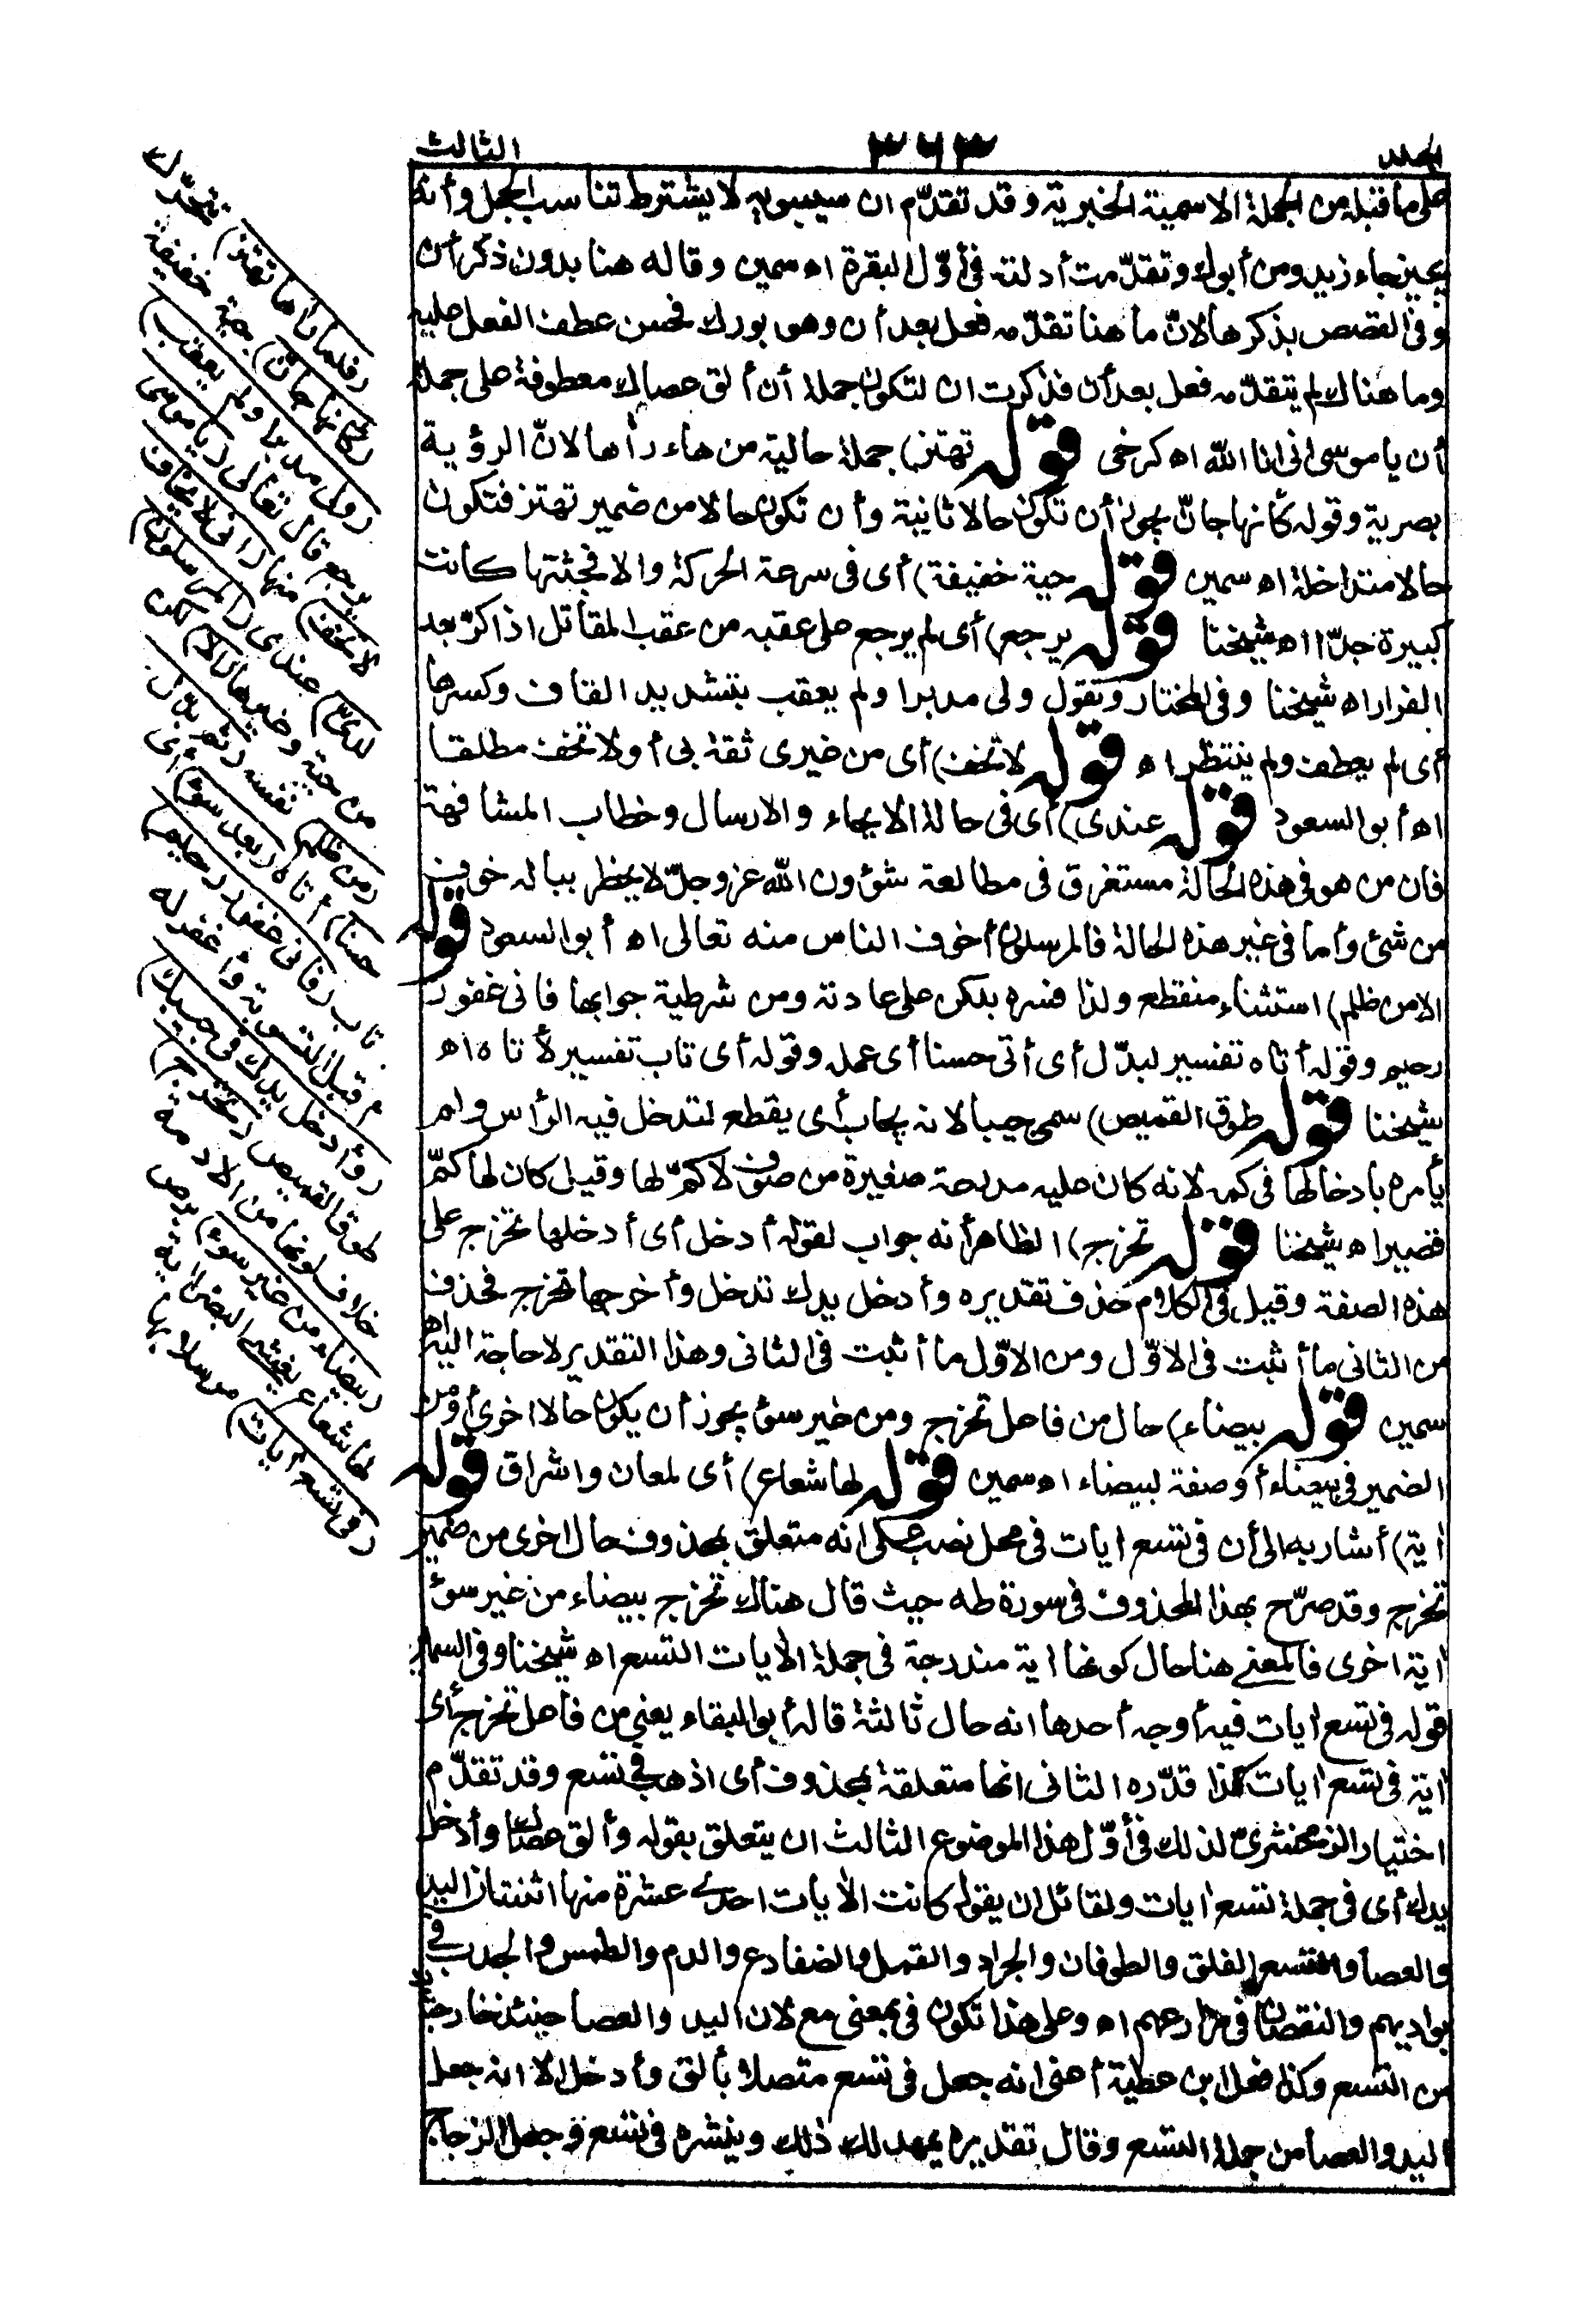 المجلد ٣٦٣ الثالث
على ما قبله من الجملة الاسمية الخبرية وقد تقدّم ان سيبويه لا يشترط تناسب الجمل وأنه
يجيز جاء زيد ومن أبوك وتقدّمت أدلته في أوّل البقرة اه سمين وقاله هنا بدون ذكر أن
وفى القصص بذكرها لانّ ما هنا تقدّمه فعل بعد أن وهو بورك فحسن عطف الفعل عليه
وما هناك لم يتقدّمه فعل بعد أن فذكرت ان لتكون جملة أن ألق عصاك معطوفة على جملة
أن يا موسى انى انا الله اه كرخى قوله تهتز) جملة حالية من هاء رأها لانّ الرؤية
بصرية وقوله كأنها جانّ يجوز أن تكون حالا ثانية وأن تكون حالا من ضمير تهتز فتكون
حالا متداخلة اه سمين قوله حية خفيفة) أى فى سرعة الحركة والا فجثتها كانت
كبيرة جدّا اه شيخنا قوله يرجع) أى لم يرجع على عقبه من عقب المقاتل اذا كرّ بعد
الفرار اه شيخنا وفى المختار وتقول ولى مدبرا ولم يعقب بتشديد القاف وكسرها
أى لم يعطف ولم ينتظر اه قوله لا تخف) أى من غيرى ثقة بى أو لا تخف مطلقا
اه أبو السعود قوله عندى) أى فى حالة الايحاء والارسال وخطاب المشافهة
فان من هو فى هذه الحالة مستغرق فى مطالعة شؤون الله عز وجلّ لا يخطر بباله خوف
من شئ وأما فى غير هذه الحالة فالمرسلون أخوف الناس منه تعالى اه أبو السعود قوله
الا من ظلم) استثناء منقطع ولذا فسره بلكن على عادته ومن شرطية جوابها فانى غفور
رحيم وقوله أتاه تفسير لبدّل أى أتى حسنا أى عمله وقوله أى تاب تفسير لأتاه اه
شيخنا قوله طوق القميص) سمى جيبا لانه يجاب أى يقطع لتدخل فيه الرأس ولم
يأمره بادخالها فى كمه لانه كان عليه مدرعة صغيرة من صوف لا كمّ لها وقيل كان لها كمّ
قصير اه شيخنا قوله تخرج) الظاهر أنه جواب لقوله أدخل أى أدخلها تخرج على
هذه الصفة وقيل فى الكلام حذف تقديره وأدخل يدك تدخل وأخرجها تخرج فحذف
من الثانى ما أثبت فى الاوّل ومن الاوّل ما أثبت فى الثانى وهذا التقدير لا حاجة اليه اه
سمين قوله بيضاء) حال من فاعل تخرج ومن غير سوء يجوز أن يكون حالا اخرى أو من
الضمير فى بيضاء أو صفة لبيضاء اه سمين قوله لها شعاع) أى لمعان واشراق قوله
اية) أشار به الى أن فى تسع ايات فى محل نصب على انه متعلق بمحذوف حال اخرى من ضمير
تخرج وقد صرّح بهذا المحذوف فى سورة طه حيث قال هناك تخرج بيضاء من غير سوء
اية اخرى فالمعنى هنا حال كونها اية مندرجة فى جملة الايات التسع اه شيخنا وفى السمين
قوله فى تسع ايات فيه أوجه أحدها انه حال ثالثة قاله أبو البقاء يعنى من فاعل تخرج أى
اية فى تسع ايات كذا قدّره الثانى انها متعلقة بمحذوف أى اذهب فى تسع وقد تقدّم
اختيار الزمخشرىّ لذلك فى أوّل هذا الموضوع الثالث ان يتعلق بقوله وألق عصاك وأدخل
يدك أى فى جملة تسع ايات ولقائل ان يقول كانت الايات احدى عشرة منها اثنتان اليد
والعصا والتسع الفلق والطوفان والجراد والقمل والضفادع والدم والطمس والجدب فى
بواديهم والنقصان فى مزارعهم اه وعلى هذا تكون فى بمعنى مع لان اليد والعصا حينئذ خارجتان
من التسع وكذا فعل ابن عطية أعنى انه جعل فى تسع متصلا بألق وأدخل الا انه جعل
اليد والعصا من جملة التسع وقال تقديره يمهد لك ذلك وينشره فى تسع وجعل الزجاج
(فلما رأها تهتز) تتحرك
(كأنها جانّ) حية خفيفة
(ولى مدبرا ولم يعقب)
يرجع قال تعالى (يا موسى
لا تخف) منها (انى لا يخاف
لدىّ) عندى (المرسلون)
من حية وغيرها (الا) لكن
(من ظلم) نفسه (ثم بدّل
حسنا) أتاه (بعد سوء) أى
تاب (فانى غفور رحيم)
أقبل التوبة وأغفر له
(وأدخل يدك فى جيبك)
طوق القميص (تخرج)
خلاف لونها من الادمة
(بيضاء من غير سوء) برص
لها شعاع يغشى البصر اية
(فى تسع أيات) مرسلا بها